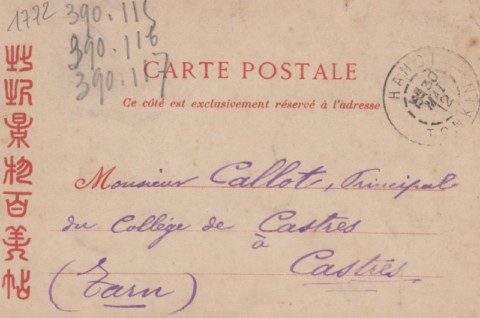 1772 390.115
390.116
390.117
CARTE POSTALE
Ce côté est exclusivement réservé à l'adresse
30
MAI
Monsieur Callot, Principal
du Collège de Castres
à
Castres
(Tarn)
北圻景物百美帖